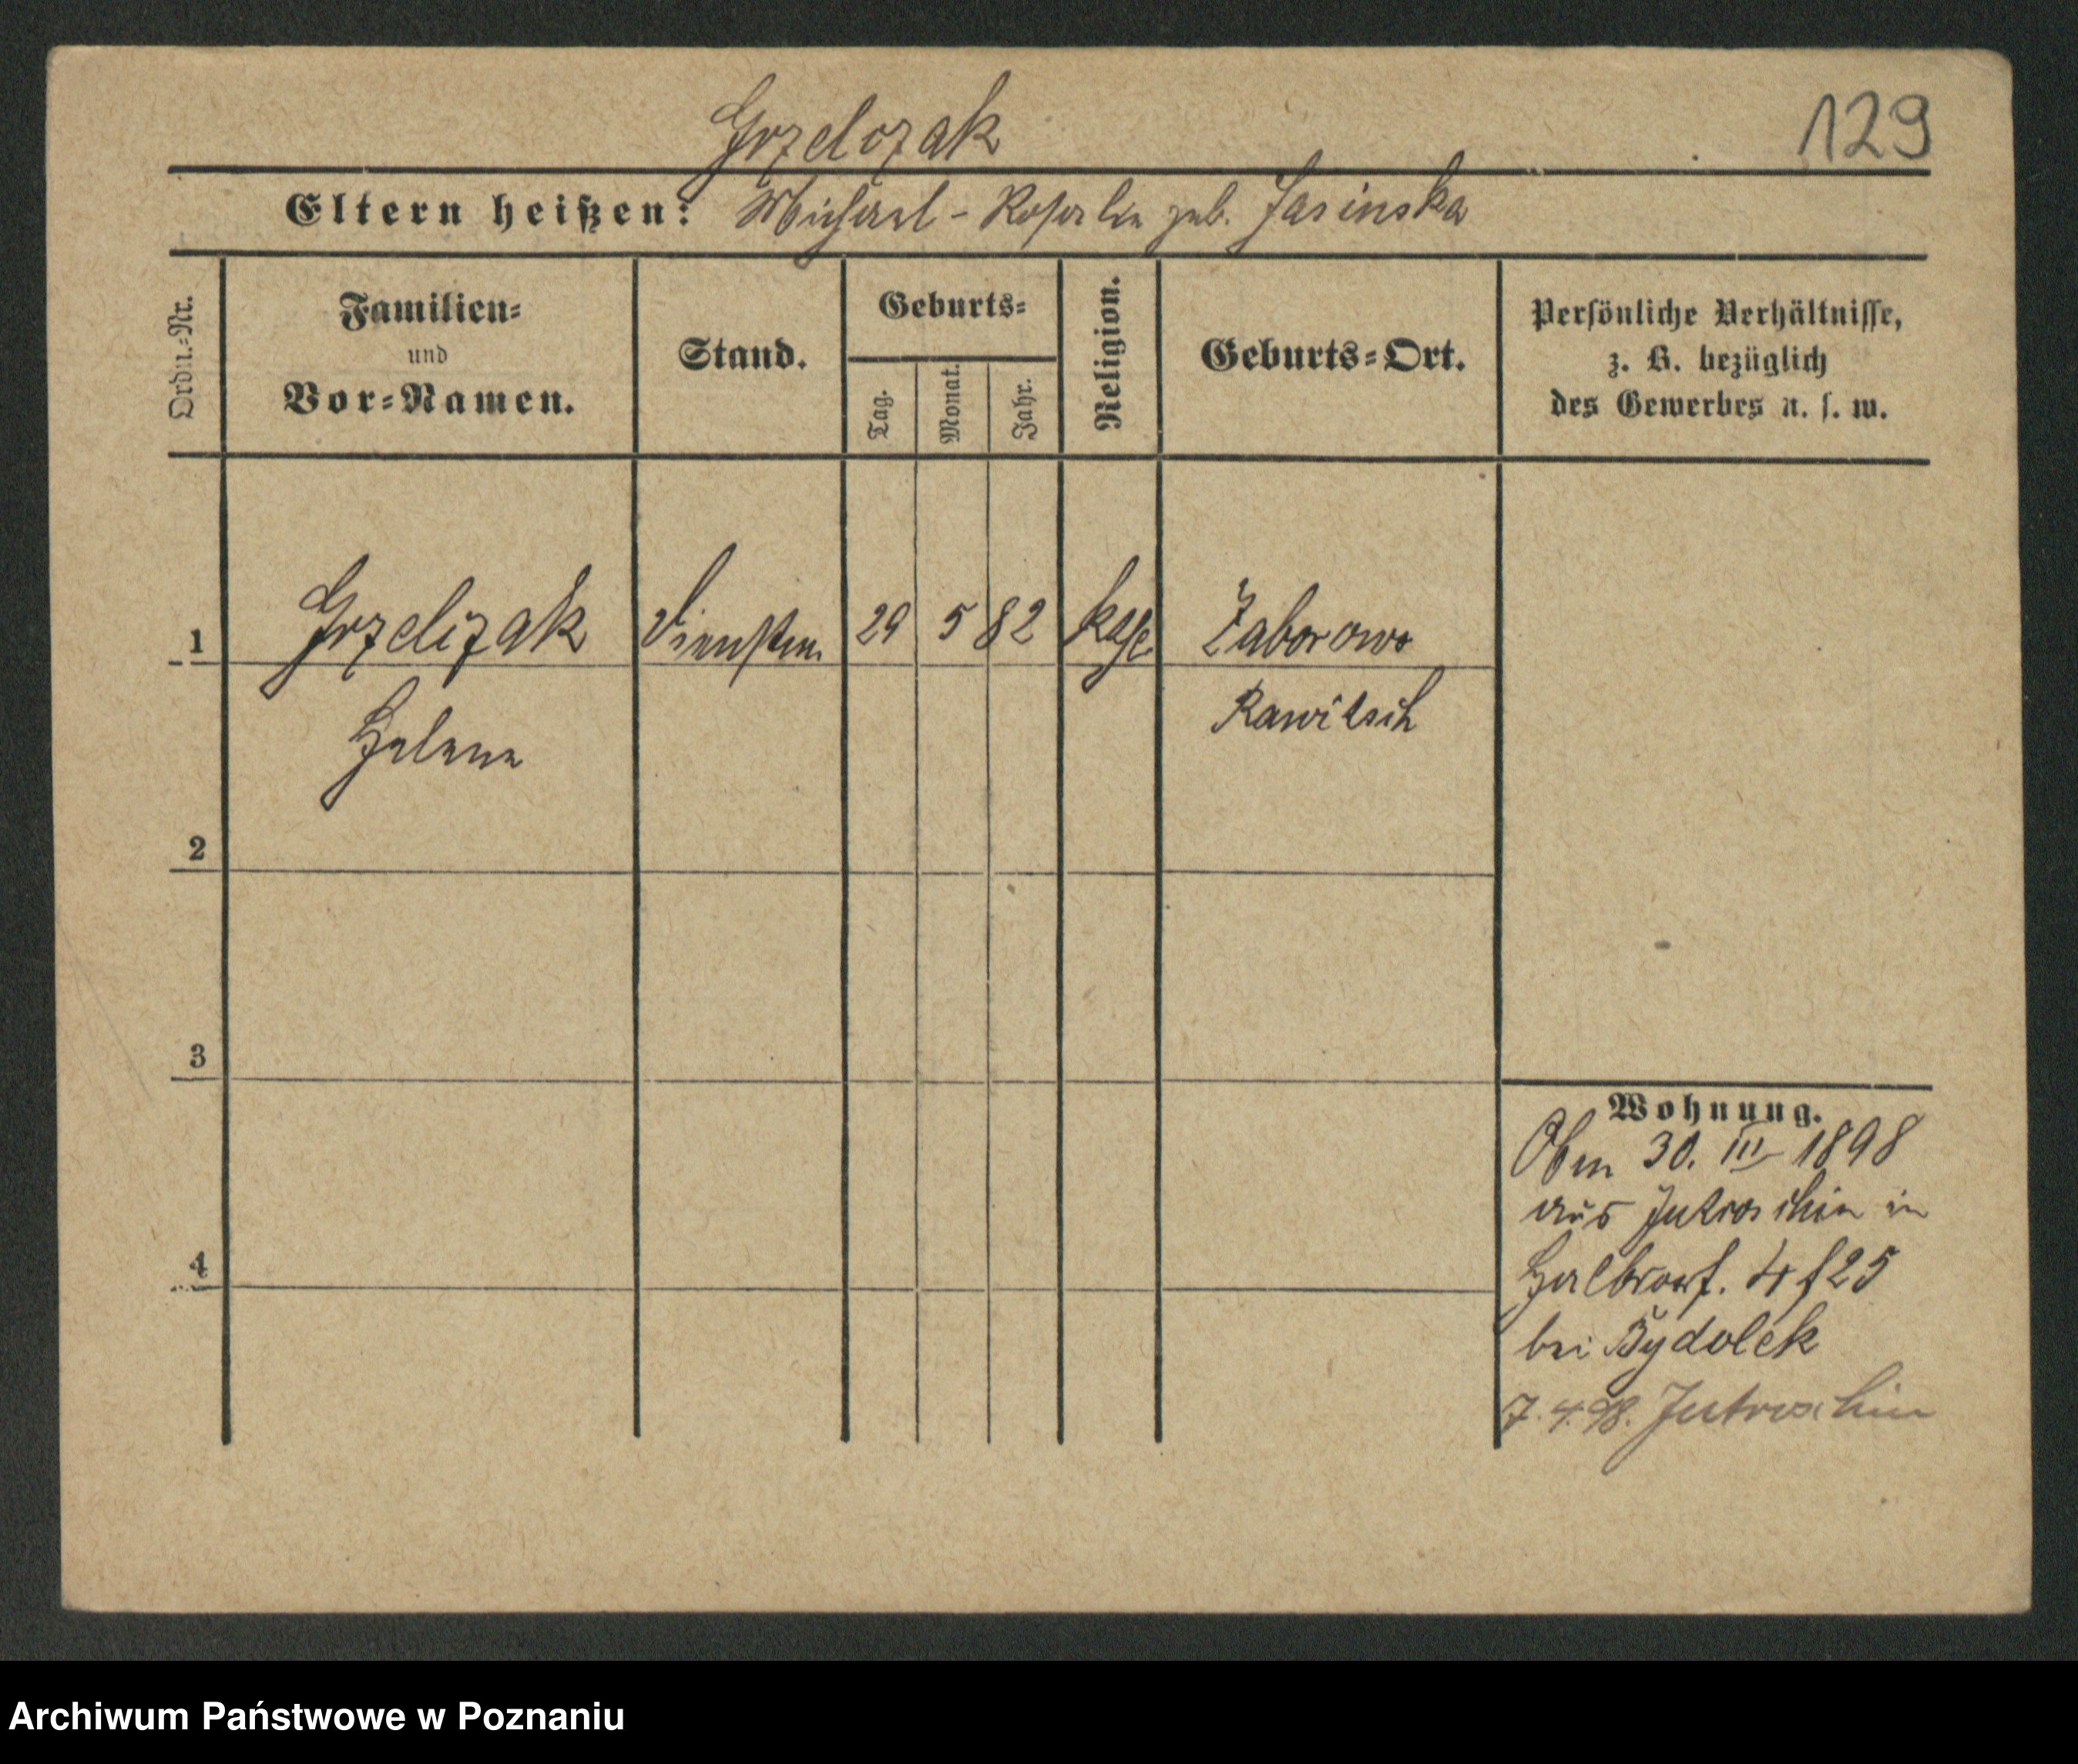 Grzelczak
129
Eltern heißen: Michael - Rosalie geb. Jasinska
Ordn.-Nr.
Familien-
und
Vor-Namen.
Stand.
Geburts-
Tag.
Monat.
Jahr.
Religion.
Geburts-Ort.
Persönliche Verhältnisse,
z. B. bezüglich
des Gewerbes u. s. w.
1
Grzelczak
29
5
82
kath
Zaborowo
Helene
Rawitsch
2
3
4
Wohnung.
30. III 1898
aus Jutroschin in
Halbdorf. 4 f 25
bei Bydolek
7. 4. 98. Jutroschin
Archiwum Państwowe w Poznaniu